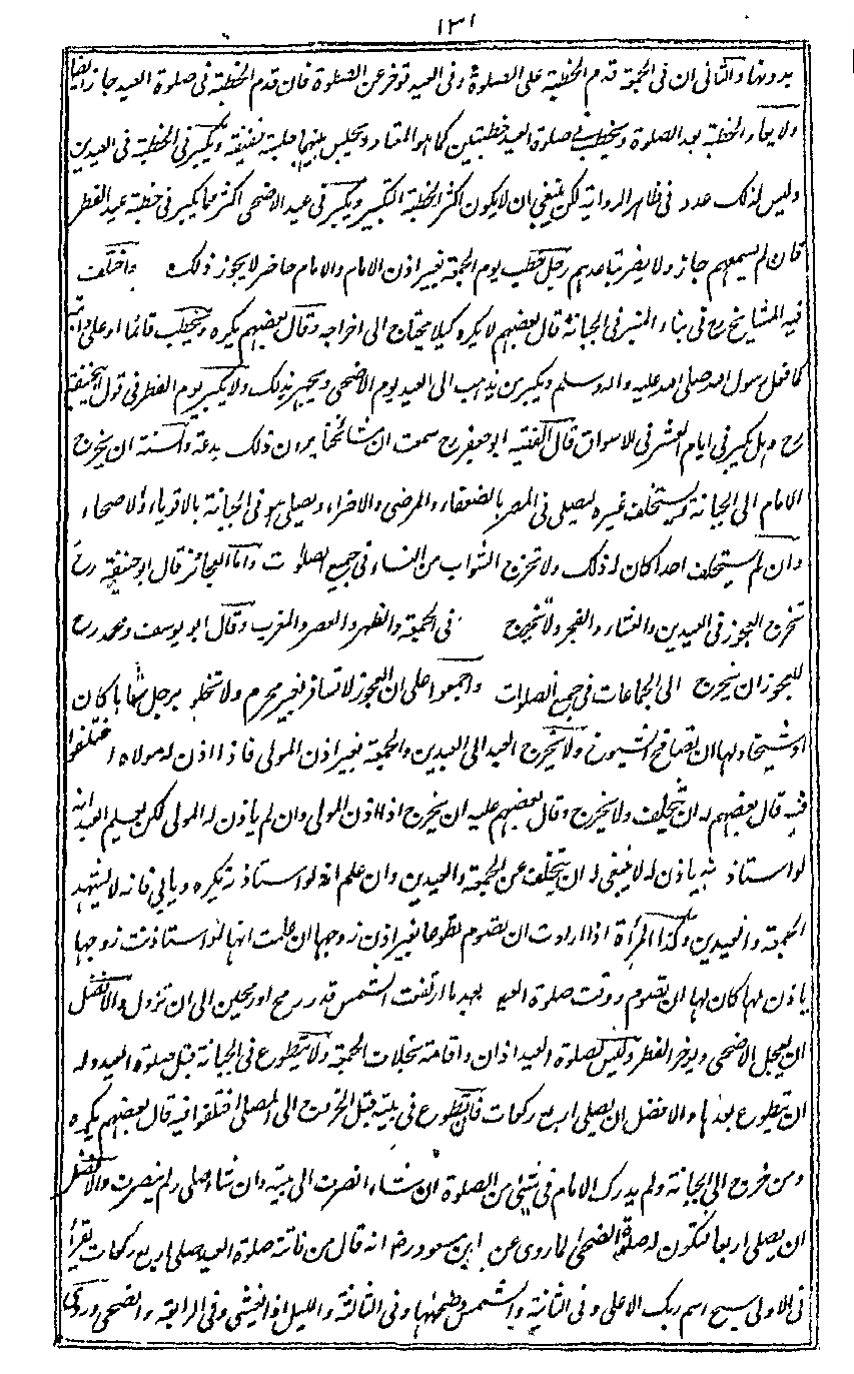 ١٣١
بدونها والثانى ان فى الجمعة تقدم الخطبة على الصلوة وفى العيد توخر عن الصلوة فان قدم الخطبة فى صلوة العيد جاز ايضا
ولا يعاد الخطبة بعد الصلوة ويخطب فى صلوة العيد خطبتين كما هو المعتاد ويجلس بينهما جلسة خفيفة ويكبر فى الخطبة فى العيدين
وليس لذلك عدد فى ظاهر الرواية لكن ينبغى ان لا يكون اكثر الخطبة التكبير ويكبر فى عيد الاضحى اكثر مما يكبر فى خطبة عيد الفطر
فان لم يسمعهم جاز ولا يضر تباعدهم رجل خطب يوم الجمعة بغير اذن الامام والامام حاضر لا يجوز ذلك واختلف
فيه المشايخ رح فى بناء المنبر فى الجبانة قال بعضهم لا يكره كيلا يحتاج الى اخراجه وقال بعضهم يكره ويخطب قائما او على دابته
كما فعل رسول الله صلى الله عليه واله وسلم ويكبر من يذهب الى العيد يوم الاضحى ويجهر بذلك ولا يكبر يوم الفطر فى قول ابيحنيفة
رح وهل يكبر فى ايام العشر فى الاسواق قال الفقيه ابو جعفر رح سمعت ان مشائخنا يرون ذلك بدعة والسنة ان يخرج
الامام الى الجبانة ويستخلف غيره ليصلى فى المصر بالضعفاء والمرضى والاضراء ويصلى هو فى الجبانة بالاقوياء والاصحاء
وان لم يستخلف احدا كان له ذلك ولا تخرج الشواب من النساء فى جميع الصلوات واما العجائز قال ابو حنيفة رح
تخرج العجوز فى العيدين والعشاء والفجر ولا تخرج فى الجمعة والظهر والعصر والمغرب وقال ابو يوسف ومحمد رح
للعجوز ان تخرج الى الجماعات فى جميع الصلوات واجمعوا على ان العجوز لا تسافر بغير محرم ولا تخلو برجل شابا كان
او شيخا ولها ان تصافح الشيوخ ولا يخرج العبد الى العيدين والجمعة بغير اذن المولى فاذا اذن له مولاه اختلفوا
فيه قال بعضهم له ان يتخلف ولا يخرج وقال بعضهم عليه ان يخرج اذا اذن المولى وان لم ياذن له المولى لكن يعلم العبد انه
لو استاذنه ياذن له لا ينبغى له ان يتخلف عن الجمعة والعيدين وان علم انه لو استاذنه يكره ويابى فانه لا يشهد
الجمعة والعيدين وكذا المرأة اذا ارادت ان تصوم تطوعا بغير اذن زوجها ان علمت انها لو استاذنت زوجها
ياذن لها كان لها ان تصوم ووقت صلوة العيد بعد ما ارتفعت الشمس قدر رمح او رمحين الى ان تزول والافضل
ان يعجل الاضحى ويوخر الفطر وليس لصلوة العيد اذان واقامة بخلاف الجمعة ولا يتطوع فى الجبانة قبل صلوة العيد وله
ان يتطوع بعدها والافضل ان يصلى اربع ركعات فان تطوع فى بيته قبل الخروج الى المصلى اختلفوا فيه قال بعضهم يكره
ومن خرج الى الجبانة ولم يدرك الامام فى شئ من الصلوة ان شاء انصرف الى بيته وان شاء صلى ولم ينصرف والافضل
ان يصلى اربعا فتكون له صلوة الضحى لما روى عن ابن مسعود رض انه قال من فاتته صلوة العيد صلى اربع ركعات يقرأ
فى الاولى سبح اسم ربك الاعلى وفى الثانية والشمس وضحها وفى الثالثة والليل اذا يغشى وفى الرابعة والضحى وروى